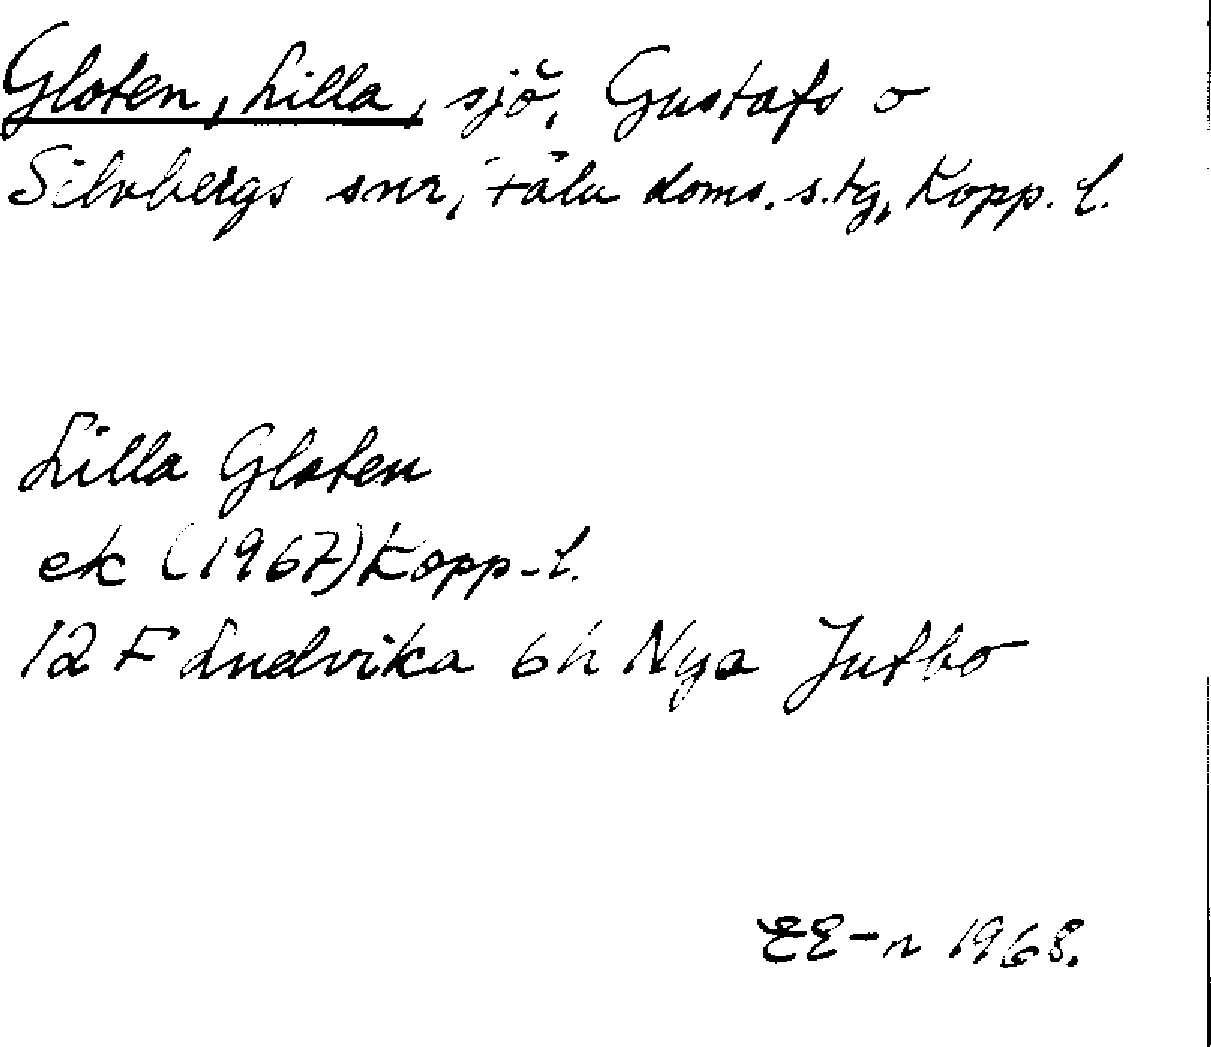 Gloten, Lilla, sjö, Gustafs o
Silvbergs snr, Fälu doms. s. tg, Kopp. l.
Lilla Gloten
ek (1967) Kopp. l.
12 F Ludvika 6h Nya Jutbo
EE-n 1968.